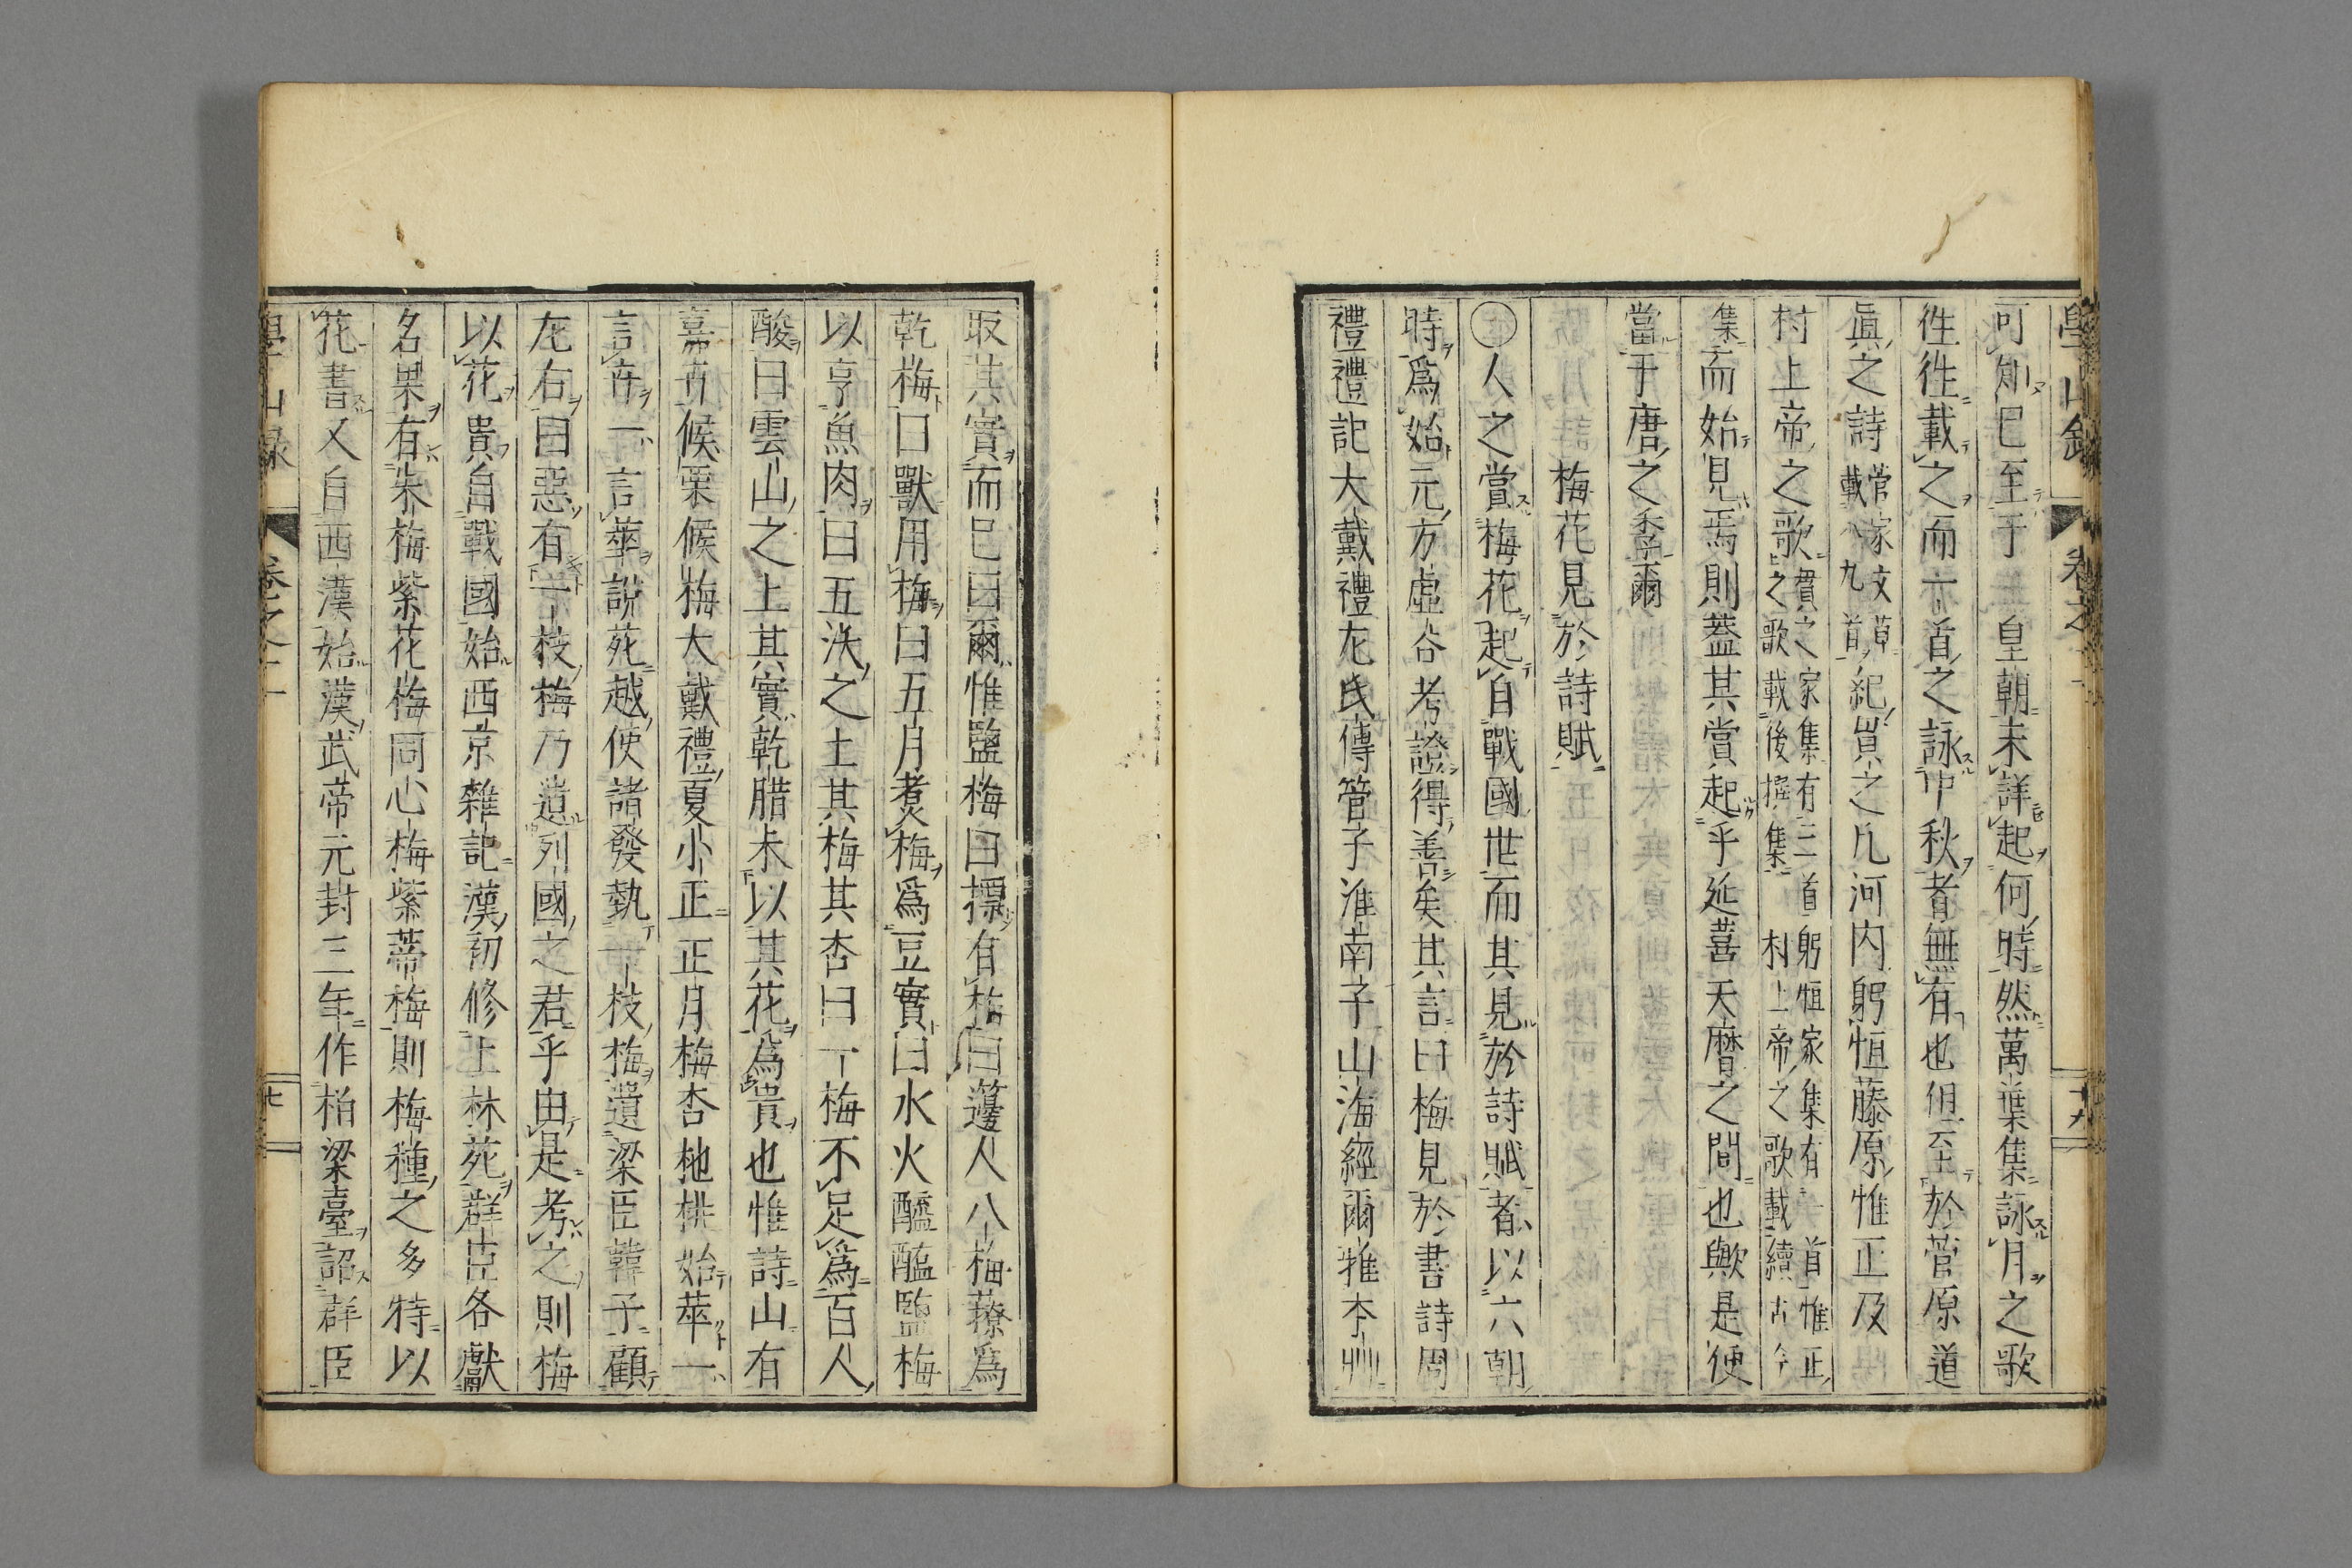 學山錄 卷之 十九
可知已至于皇朝未詳起何時然萬葉集詠月之歌
徃徃載之而亦首之詠中秋者無有也但至於菅原道
眞之詩菅家文草載八九首紀貫之凡河內躬恒藤原惟正及
村上帝之歌貫之家集有三首躬恒家集有 首惟正之歌載後撰集村上帝之歌載續古今
集而始見焉則蓋其賞起乎延喜天曆之間也歟是便
當于唐之季爾
梅花見於詩賦
○人之賞梅花起自戰國世而其見於詩賦者以六朝
時爲始元方虛谷考證得善矣其言曰梅見於書詩周
禮禮記大戴禮左氏傳管子淮南子山海經爾雅本艸
取其實而已曰爾惟鹽梅曰摽有梅曰籩人八梅䕩爲
乾梅曰獸用梅曰五月煮梅爲豆實曰水火醯醢鹽梅
以亨魚肉曰五沃之土其梅其杏曰一梅不足爲百人
酸曰雲山之上其實乾腊未以其花爲貴也惟詩山有
嘉卉候栗候梅大戴禮夏小正正月梅杏杝桃始華一
言卉一言華說苑越使諸發執一枝梅遺梁臣韓子顧
左右曰惡有一枝梅乃遺列國之君乎由是考之則梅
以花貴自戰國始西京雜記漢初修上林苑群臣各獻
名果有朱梅紫花梅同心梅紫蔕梅則梅種之多特以
花書又自西漢始漢武帝元封三年作柏梁臺詔群臣
學山錄 卷之二 七